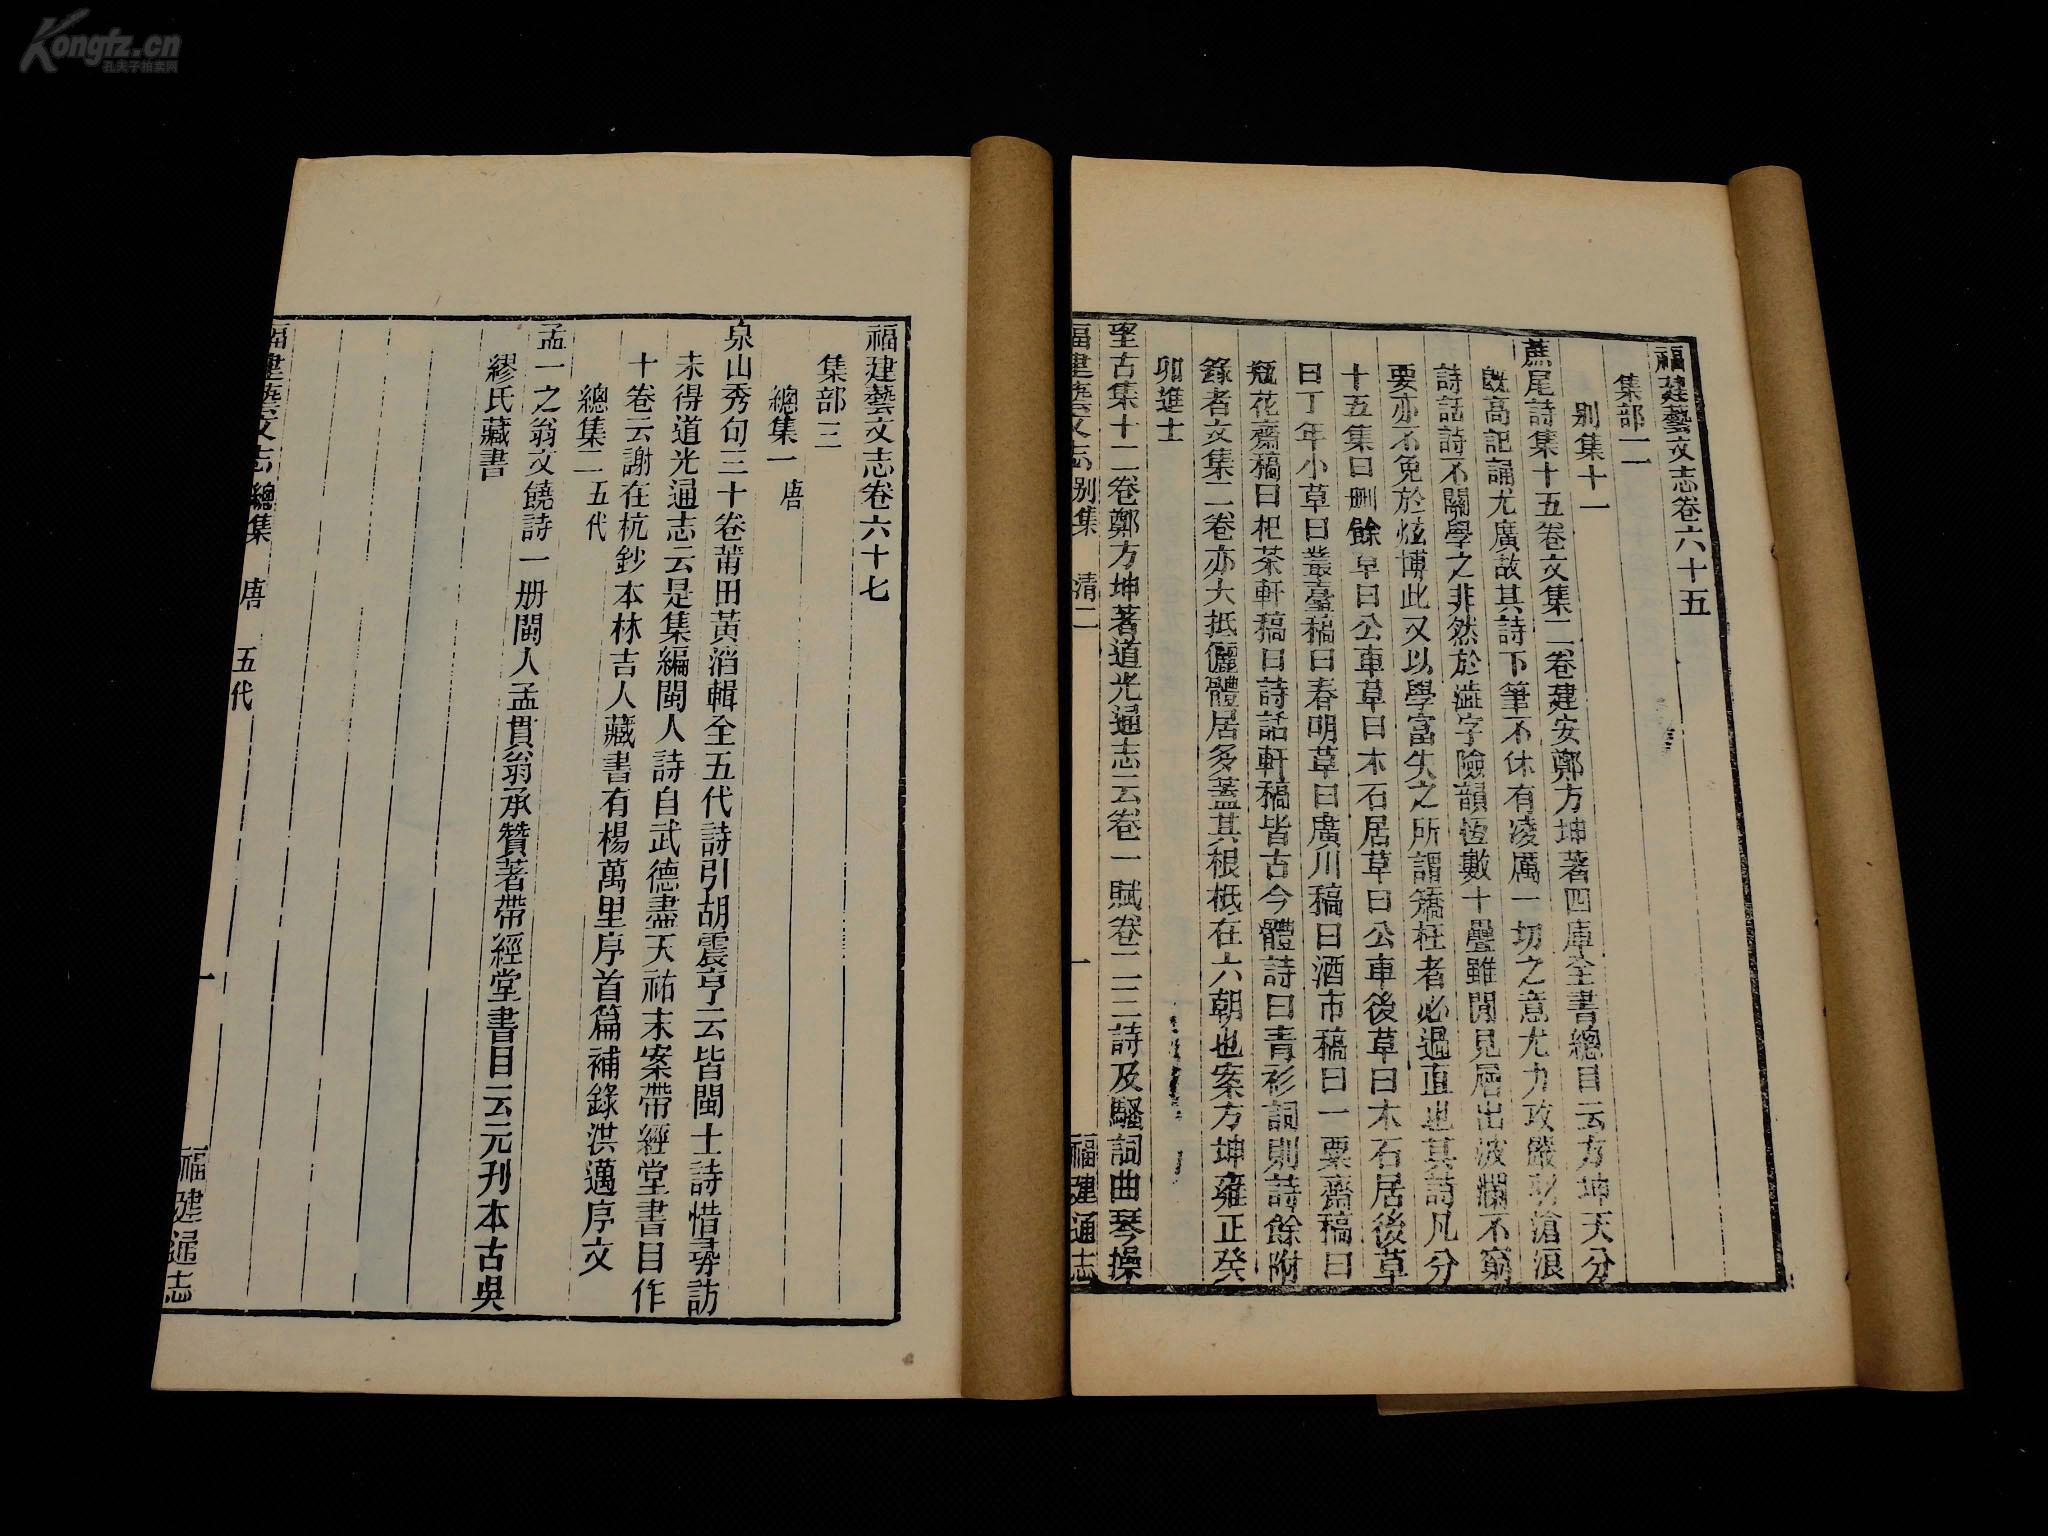 Kongfz.cn
孔夫子拍卖网
福建藝文志卷六十五
集部二
別集十一
蔗尾詩集十五卷文集二卷建安鄭方坤著四庫全書總目云方坤天分
既高記誦尤廣故其詩下筆不休有凌厲一切之意尤力攻嚴羽滄浪
詩話詩不關學之非然於澁字險韻恆數十疊雖閒見層出波瀾不窮
要亦不免於炫博此又以學富失之所謂矯枉者必過直也其詩凡分
十五集曰刪餘草曰公車草曰木石居草曰公車後草曰木石居後草
曰丁年小草曰叢臺稿曰春明草曰廣川稿曰酒市稿曰一粟齋稿曰
瓶花齋稿曰杞茶軒稿曰詩話軒稿皆古今體詩曰青衫詞則詩餘附
錄者文集二卷亦大抵儷體居多蓋其根柢在六朝也案方坤雍正癸
卯進士
望古集十二卷鄭方坤著道光通志云卷一賦卷二三詩及騷詞曲琴操
福建藝文志 別集 清二 一 福建通志
福建藝文志卷六十七
集部三
總集一 唐
泉山秀句三十卷莆田黃滔輯全五代詩引胡震亨云皆閩士詩惜尋訪
未得道光通志云是集編閩人詩自武德盡天祐末案帶經堂書目作
十卷云謝在杭鈔本林吉人藏書有楊萬里序首篇補錄洪邁序文
總集二 五代
孟一之翁文饒詩一册閩人孟貫翁承贊著帶經堂書目云元刊本古吳
繆氏藏書
福建藝文志 總集 唐 五代 一 福建通志